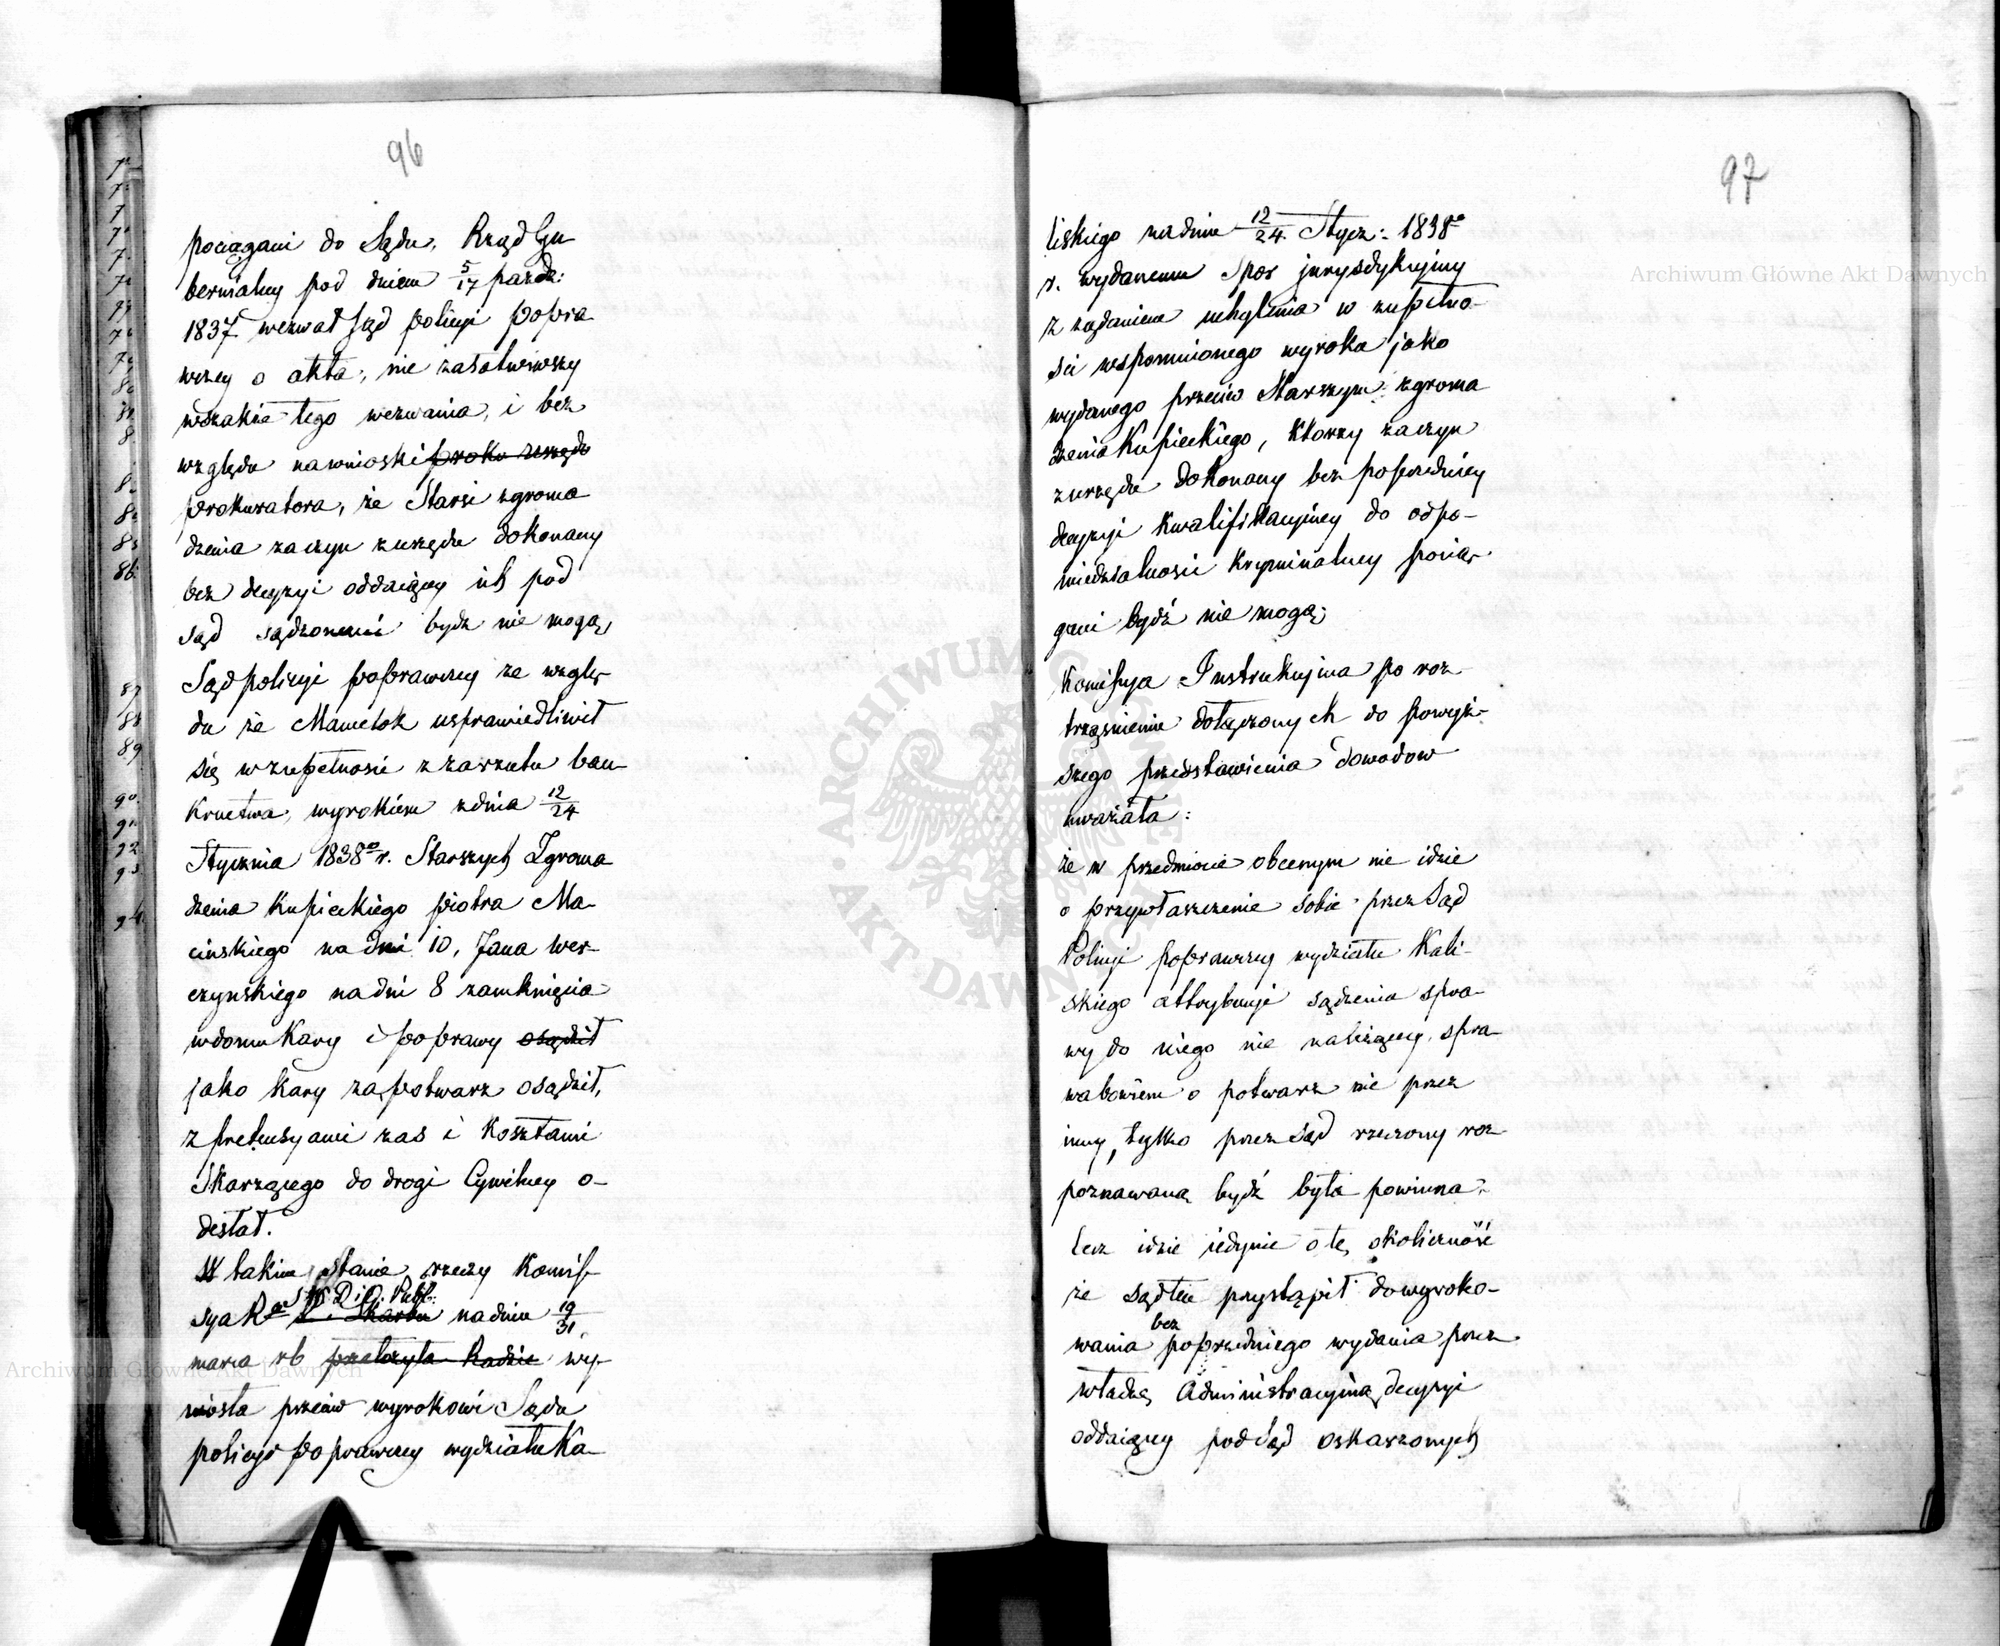 96
pociągani do Sądu, Rząd Gu
bernialny pod dniem 5/17 paźdz:
1837 wezwał Sąd policyi popra
wczey o akta, nie załatwiwszy
wszakże tego wezwania, i bez
względu na wnioski proku urzędu
prokuratora, że Starsi zgroma
dzenia za czyn z urzędu dokonany
bez decyzyi oddaiącey ich pod
sąd sądzonemi bydź nie mogą,
Sąd policyi poprawczey ze wzglę
du że Mamelok usprawiedliwił
się w zupełności z zarzutu ban
kructwa, wyrokiem z dnia 12/24
Stycznia 1838go r. Starszych Zgroma
dzenia Kupieckiego Piotra Ma-
cińskiego na dni 10, Jana Wer-
czyńskiego na dni 8 zamknięcia
w domu Kary i poprawy osądził
jako kary za potwarz osądził,
z pretensyami zaś i kosztami
Skarżącego do drogi Cywilney o-
desłał.
W takim stanie rzeczy Komis-
sya R S. W. D. i O. Publ: Skarbu na dniu 19/31
marca rb przełożyła Radzie wy-
niosła przeciw wyrokowi Sądu
policyi poprawczey wydziału Ka-
97
liskiego na dniu 12/24 Stycz: 1838go
r. wydanemu Spór jurysdykcyiny
z żądaniem uchylenia w zupełno-
ści wspomnionego wyroku jako
wydanego przeciw Starszym zgroma
dzenia Kupieckiego, którzy za czyn
z urzędu dokonany bez poprzedniey
decyzyi kwalifikacyiney do odpo-
wiedzialności kryminalney pocią-
gani bydź nie mogą;
Komissya Instrukcyina po roz-
trząśnieniu dołączonych do powyż-
szego przedstawienia dowodów
uważała:
że w przedmiocie obecnym nie idzie
o przywłaszczenie sobie przez Sąd
Policyi poprawczey wydziału Kali-
skiego attrybucyi sądzenia spra-
wy do niego nie należącey, spra-
wa bowiem o potwarz nie przez
inny, tylko przez Sąd rzeczony roz-
poznawaną bydź była powinna,
lecz idzie iedynie o tę okoliczność
że Sąd ten przystąpił do wyroko-
wania bez poprzedniego wydania przez
władzę Administracyiną decyzyi
oddaiącey pod Sąd oskarżonych
Archiwum Główne Akt Dawnych
Archiwum Główne Akt Dawnych
ARCHIWUM GŁÓWNE AKT DAWNYCH